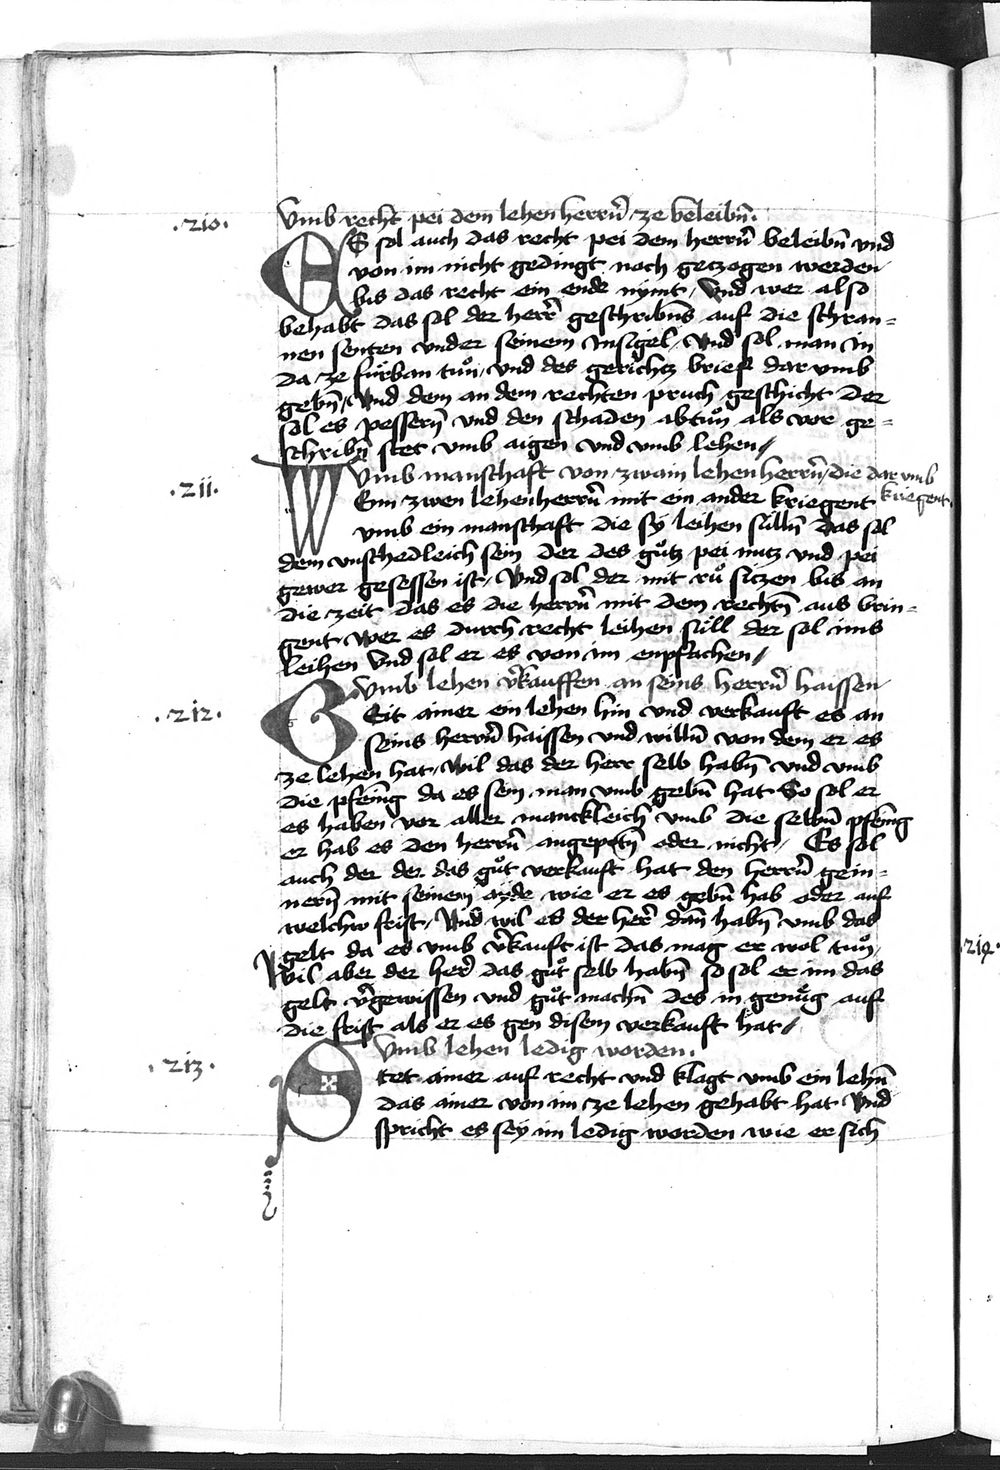 .210.
Vmb recht pei dem lehen herrn̄ ze beleibn̄.
ES sol auch das recht pei dem herrn̄ beleibn̄ vnd
von im nicht gedingt noch getzogen werden
bis das recht ein ende nymt / Vnd wer also
behabt das sol der herr̄ geschribn̄s auf die schran=
nen senten vnder seinem Insigel / Vnd sol man Im
da ze fürban tuͦn / vnd des gerichtz brief dar vmb
gebn̄ / Vnd dem an dem rechten pruch geschicht der
sol es pessern̄ vnd den schaden abtuͦn als vor ge=
schribn̄ stet vmb aigen vnd vmb lehen /
.211.
Vmb manschaft von zwain lehen herrn̄ / die dar vmb
kriegent.
WEnn zwen lehenherrn̄ mit ein ander kriegent
vmb ein manschaft die sy leihen sülln̄ das sol
dem vnschedleich sein der des guͦtz pei nutz vnd pei
gewer gesessen ist / Vnd sol der mit ruͦ sitzen bis an
die zeit das es die herrn̄ mit dem rechtn̄ aus brin=
gent wer es durch recht leihen süll der sol ims
leihen Vnd sol er es von im enpfachen /
.212.
Vmb lehen v̄kauffen an seins herrn̄ haissen
GEit ainer ein lehen hin vnd verkauft es an
seins herrn̄ haissen vnd willn̄ von dem er es
ze lehen hat / Wil das der herr selb habn̄ vnd vmb
die pfen̄ing da es sein man vmb gebn̄ hat So sol er
es haben vor aller manckleich vmb die selbn̄ pfen̄ing
er hab es den herrn̄ angepotn̄ oder nicht / Es sol
auch der der das guͦt verkauft hat den herrn̄ gein=
nern̄ mit seinem ayde wie er es gebn̄ hab oder auf
welchw frist / Vnd wil es der her̄ dan̄ habn̄ vmb das
gelt da es vmb v̄kauft ist das mag er wol tuͦn /
Wil aber der her̄ das guͦt selb habn̄ so sol er im das
gelt v̄gewissen vnd guͦt machn̄ des in genuͦg auf
die frist als er es gen disem verkauft hat /
.213.
Vmb lehen ledig worden.
Stet ainer auf recht vnd klagt vmb ein lehn̄
das ainer von im ze lehen gehabt hat Vnd
spricht es sey im ledig worden wie er sich
.214.